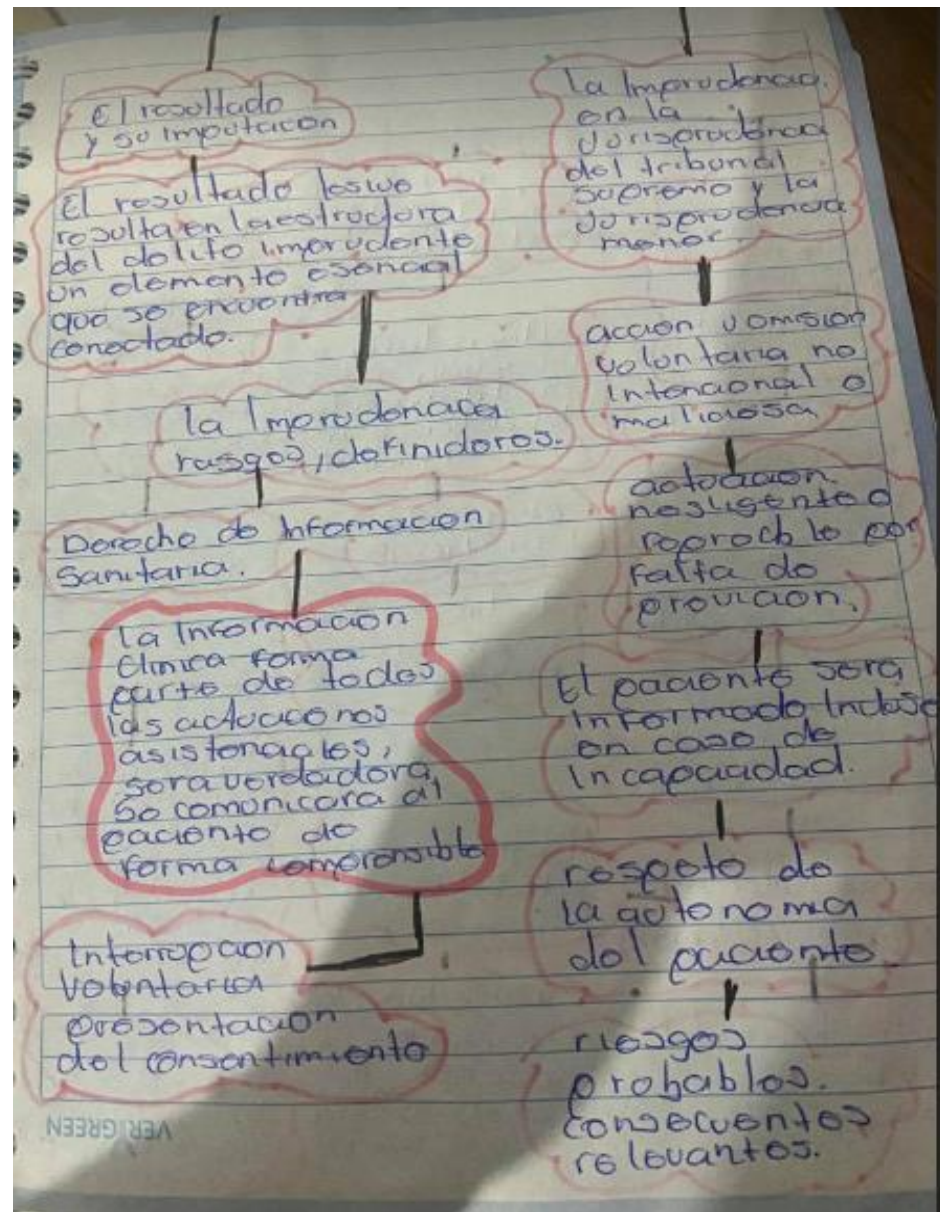 El resultado
y su imputacion
El resultado lesivo
resulta en la estructura
del delito imprudente
un elemento esencial
que se encuentra
conectado.
la Imprudencia
rasgos, definidores.
Derecho de Informacion
Sanitaria.
la Informacion
Clinica forma
parte de todas
las actuaciones
asistenciales,
sera verdadera,
se comunicara al
paciente de
forma comprensible
Interrupcion
Voluntaria
presentacion
del consentimiento
VER GREEN
la Imprudencia
en la
Jurisprudencia
del tribunal
supremo y la
Jurisprudencia
menor
accion u omision
voluntaria no
intencional o
maliciosa
actuacion
negligente o
reprochble por
falta de
previcion.
El paciente sera
informado incluso
en caso de
incapacidad.
respeto de
la autonomia
del paciente.
riesgos
probables.
consecuentes
relevantes.